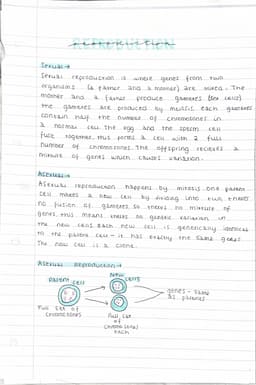 REPRODUCTION
Sexual →
Sexual reproduction is where genes from two
organisms (a father and a mother) are mixed. The
mother and a father produce gametes (sex cells)
The gametes are produced by meiosis each gametes
contain half the number of chromosomes in
a normal cell the egg and the sperm cell
fuse together. this forms a cell with a full
number of chromosomes. The offspring recieves a
mixture of genes which causes variation.
Asexual →
Asexual reproduction happens by mitosis. one parent
cell makes a new cell by dividing into two. theres
no fusion of gametes so theres no mixture of
genes. this means theres no genetic variation in
the new cells each new cell is genetically identical
to the parent cell - it has exactly the same genes
The new cell is a clone.
Asexual reproduction →
parent cell
new cells
genes - same
as parents
Full set of
chromosomes
Full set
of
chromosomes
each